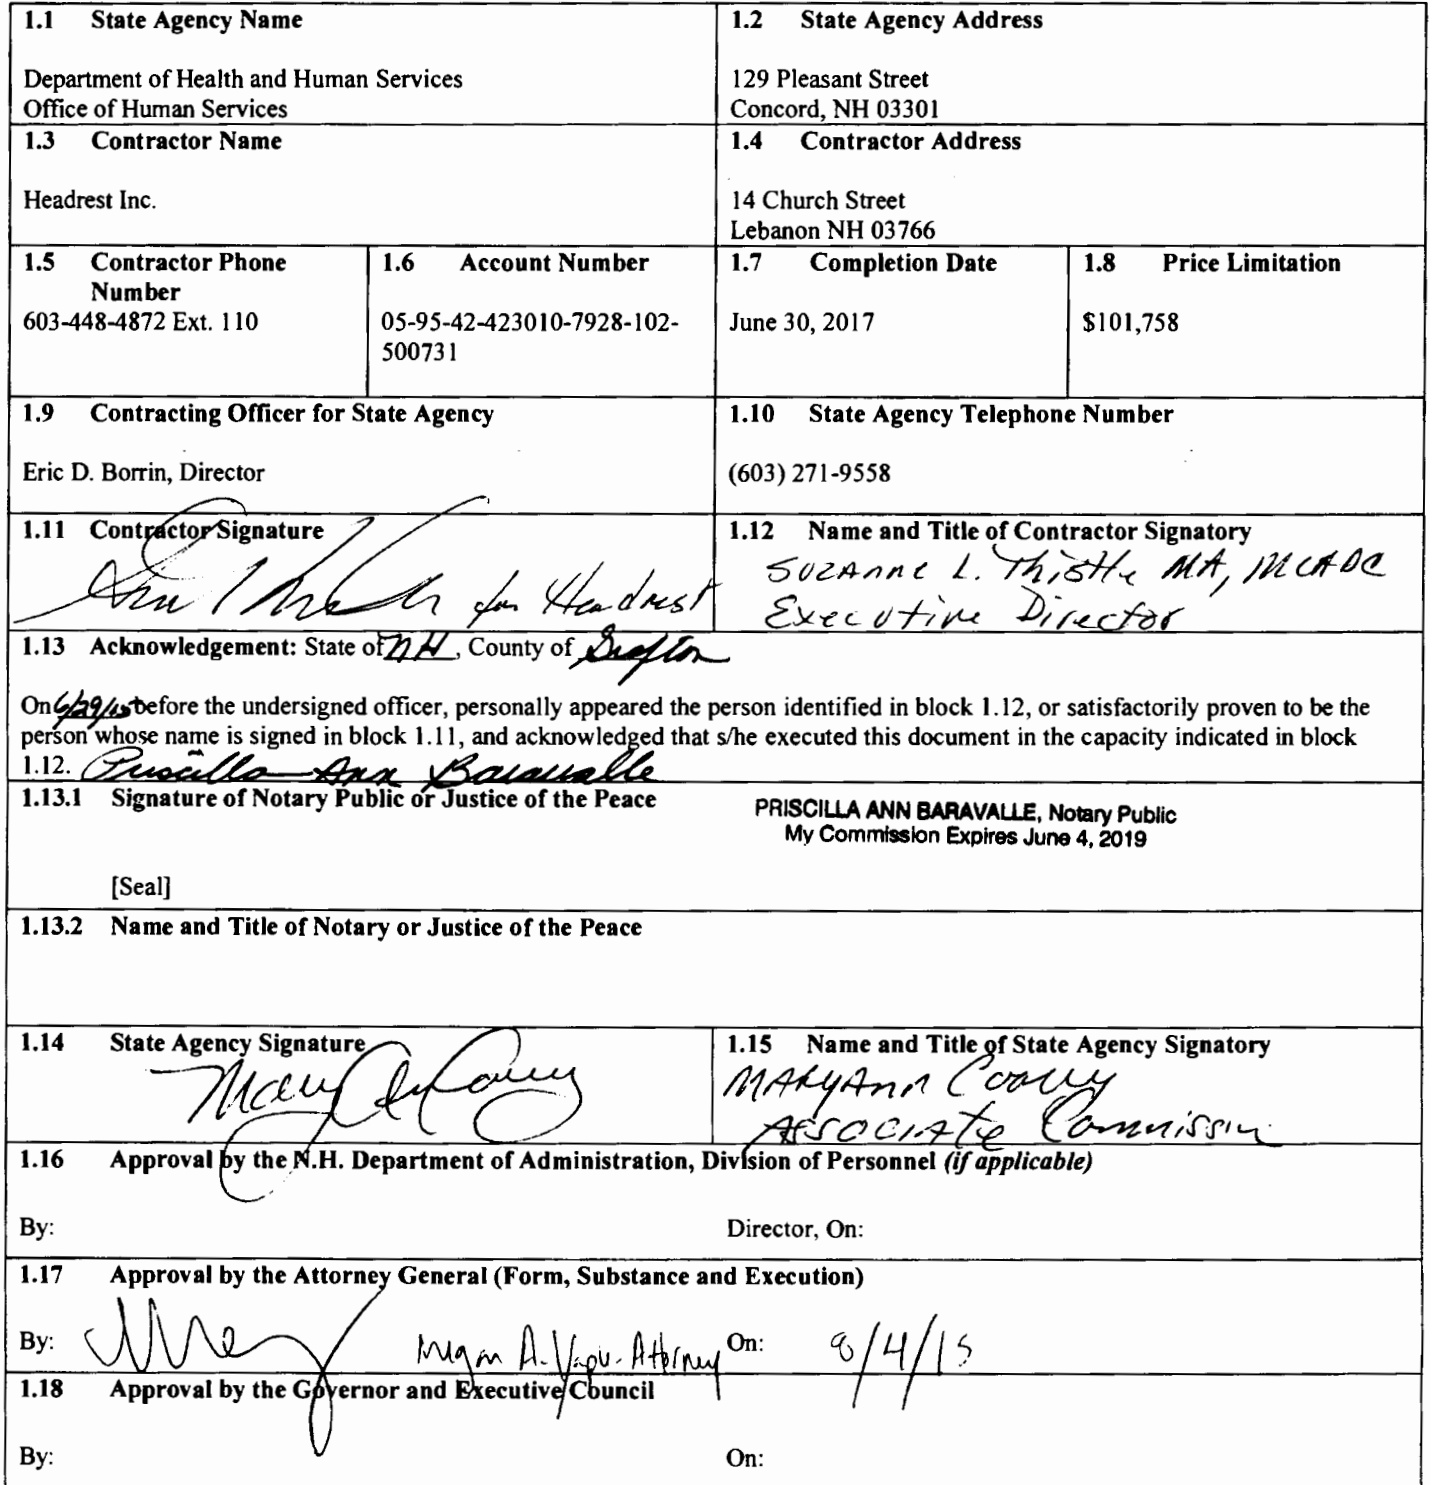 1.1 State Agency Name
Department of Health and Human Services
Office of Human Services
1.2 State Agency Address
129 Pleasant Street
Concord, NH 03301
1.3 Contractor Name
Headrest Inc.
1.4 Contractor Address
14 Church Street
Lebanon NH 03766
1.5 Contractor Phone
Number
603-448-4872 Ext. 110
1.6 Account Number
05-95-42-423010-7928-102-
500731
1.7 Completion Date
June 30, 2017
1.8 Price Limitation
$101,758
1.9 Contracting Officer for State Agency
Eric D. Borrin, Director
1.10 State Agency Telephone Number
(603) 271-9558
1.11 Contractor Signature
for Headrest
1.12 Name and Title of Contractor Signatory
Suzanne L. Thistle MA, MLADC
Executive Director
1.13 Acknowledgement: State of NH, County of Grafton
On 6/29/15 before the undersigned officer, personally appeared the person identified in block 1.12, or satisfactorily proven to be the
person whose name is signed in block 1.11, and acknowledged that s/he executed this document in the capacity indicated in block
1.12. Priscilla Ann Baravalle
1.13.1 Signature of Notary Public or Justice of the Peace
PRISCILLA ANN BARAVALLE, Notary Public
My Commission Expires June 4, 2019
[Seal]
1.13.2 Name and Title of Notary or Justice of the Peace
1.14 State Agency Signature
1.15 Name and Title of State Agency Signatory
MaryAnn Cooney
Associate Commission
1.16 Approval by the N.H. Department of Administration, Division of Personnel (if applicable)
By:
Director, On:
1.17 Approval by the Attorney General (Form, Substance and Execution)
By: Megan A. - Attorney On: 8/4/15
1.18 Approval by the Governor and Executive Council
By:
On: